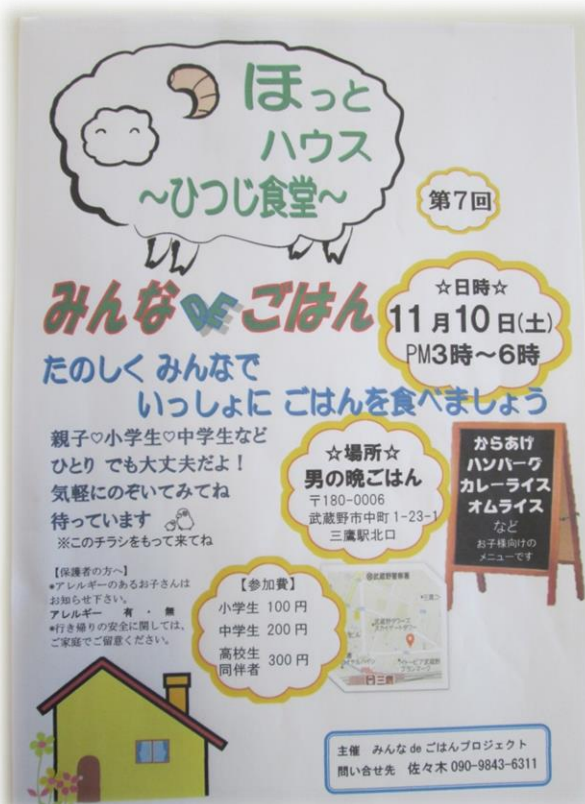 ほっと
ハウス
～ひつじ食堂～
第7回
みんなDEごはん
☆日時☆
11月10日(土)
PM3時～6時
たのしく みんなで
いっしょに ごはんを食べましょう
親子♡小学生♡中学生など
ひとり でも大丈夫だよ！
気軽にのぞいてみてね
待っています
※このチラシをもって来てね
☆場所☆
男の晩ごはん
〒180-0006
武蔵野市中町1-23-1
三鷹駅北口
からあげ
ハンバーグ
カレーライス
オムライス
など
お子様向けの
メニューです
【保護者の方へ】
*アレルギーのあるお子さんは
お知らせ下さい。
アレルギー 有 ・ 無
*行き帰りの安全に関しては、
ご家庭でご留意ください。
【参加費】
小学生 100円
中学生 200円
高校生
同伴者 300円
武蔵野警察署
武蔵野タワーズ
三鷹
主催 みんな de ごはんプロジェクト
問い合せ先 佐々木 090-9843-6311